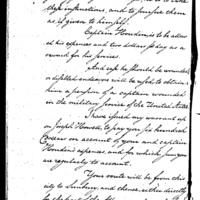 these instructions, and to justify them
as if given to himself.
Captain Hendricks is to be allowed
his expences and two dollars a day as a
reward for his services.
And if he should be wounded,
endeavors will be used to obtain
him a pension of a captain wounded
in the military service of the United States.
I have issued my warrant up
on Joseph Howell to pay you six hundred
on account of yours and captain
Hendricks expences, and for which you
are regularly to account.
Your route will be from this
city to Sunbury, and thence directly